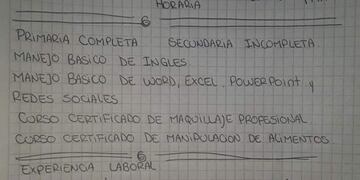 HORARIA
PRIMARIA COMPLETA SECUNDARIA INCOMPLETA
MANEJO BASICO DE INGLES
MANEJO BASICO DE WORD, EXCEL, POWERPOINT y
REDES SOCIALES
CURSO CERTIFICADO DE MAQUILLAJE PROFESIONAL
CURSO CERTIFICADO DE MANIPULACION DE ALIMENTOS
EXPERIENCIA LABORAL